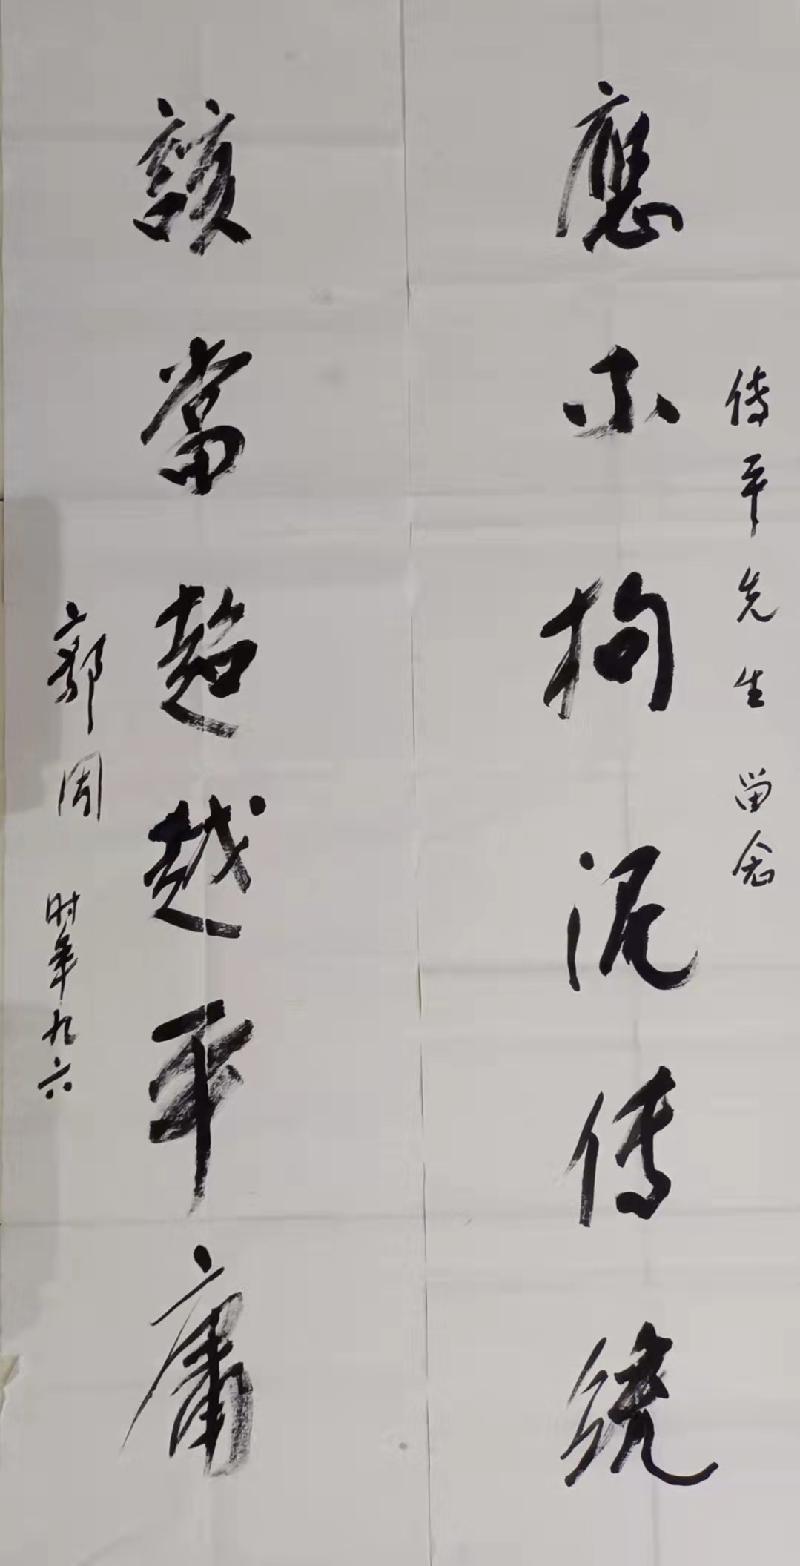 傳平先生留念
應不拘泥传統
該當超越平庸
郭周
时年九六